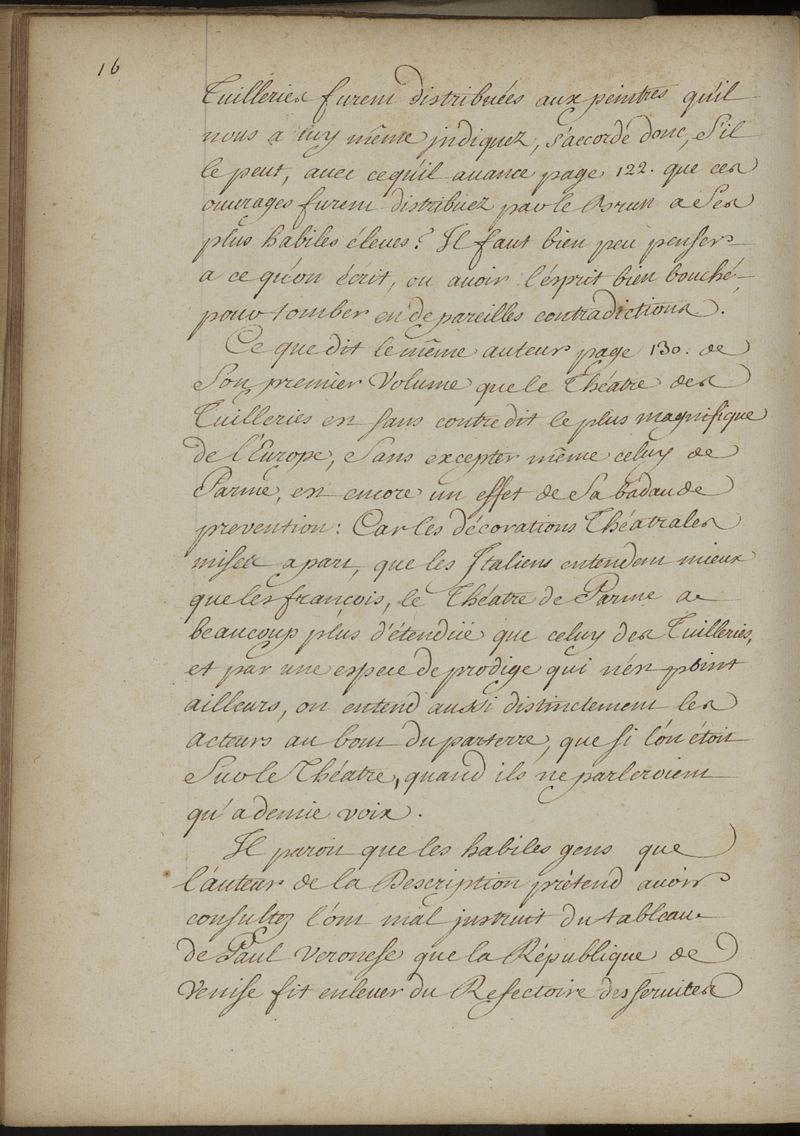 16
Tuilleries furent distribuées aux peintres qu'il
nous a luy même jndiquez, s'accorde donc, s'il
le peut, avec cequ'il avance page 122. que ces
ouvrages furent distribuez par le Brun a Ses
plus habiles éleves? Il faut bien peu penser
a ce qu'on écrit, ou avoir l'ésprit bien bouché,
pour tomber en de pareilles contradictions.
Ce que dit le même auteur page 130. de
Son premier Volume que le Théatre des
Tuilleries est sans contredit le plus magnifique
de l'Europe, Sans excepter même celuy de
Parme, est encore un effet de Sa badaude
prevention: Car les décorations Théatrales
mises apart, que les Italiens entendent mieux
que les françois, le Théatre de Parme a
beaucoup plus d'étendüe que celuy des Tuilleries,
et par une espece de prodige qui n'est point
ailleurs, on entend aussi distinctement les
acteurs au bout du parterre, que si l'on étoit
Sur le Théatre, quand ils ne parleroient
qu'a demie voix.
Il paroit que les habiles gens que
l'auteur de la Description prétend avoir
consultez l'ont mal jnstruit du tableau
de Paul Veronese que la République de
Venise fit enlever du Refectoire des servites